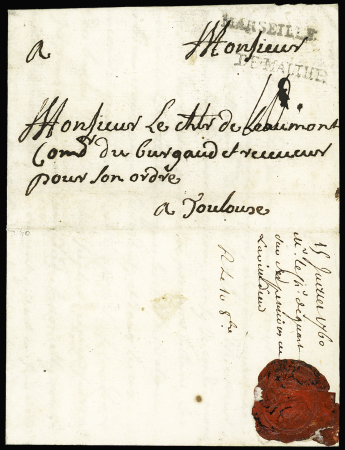 MARSEILLE
DE MALTHE
A Monsieur
Monsieur Le chlr de Beaumont
Comdr du burgaud et receveur
pour son ordre
a Toulouse
15 Janvier 1760
Mr le
R Le 10 8bre